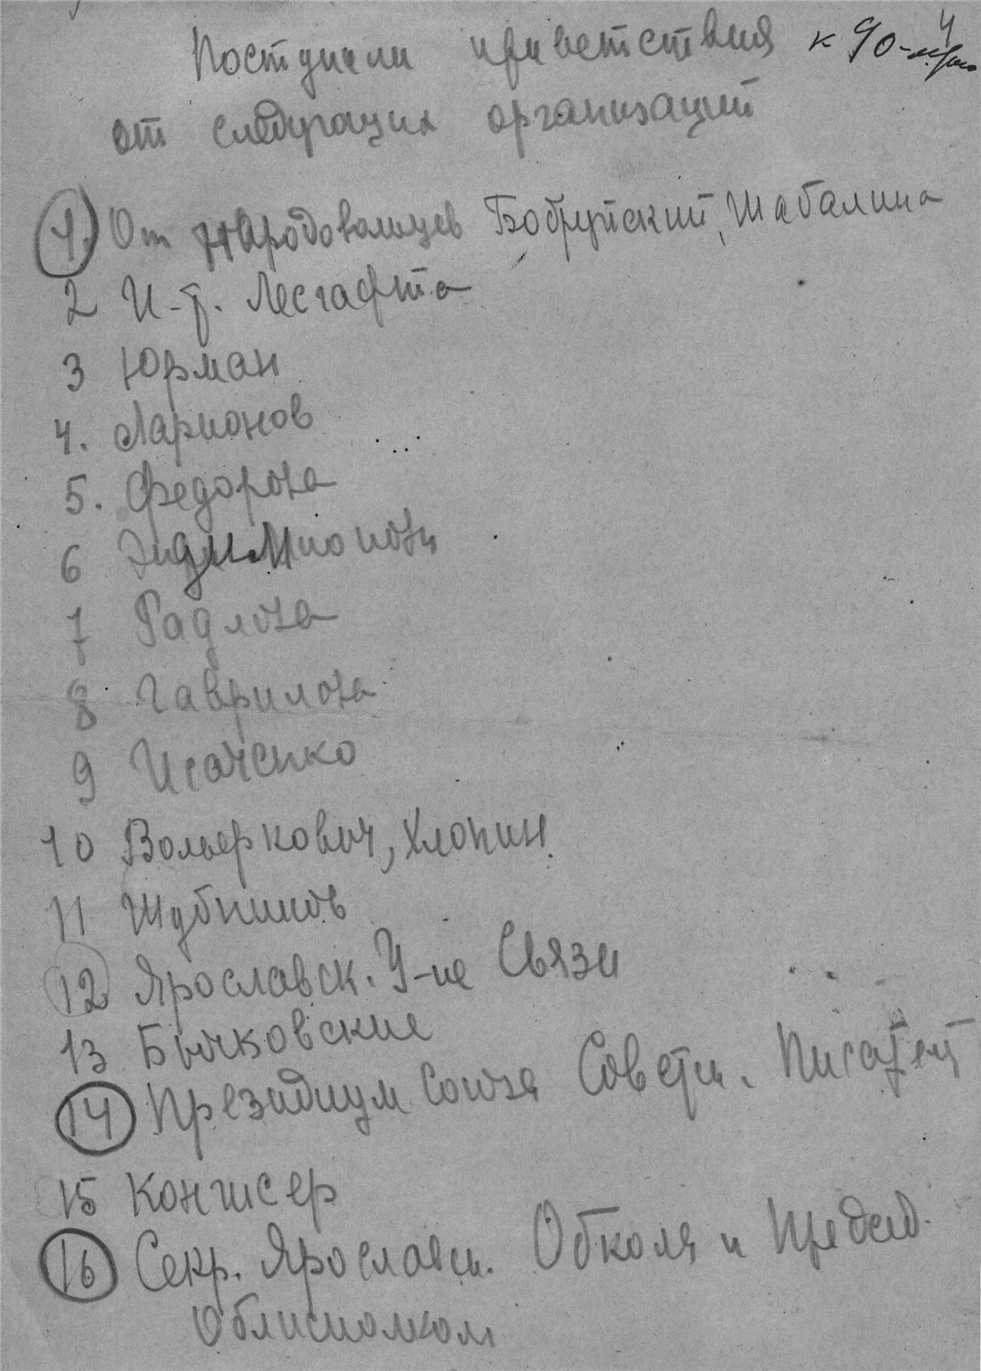 4
Поступили приветствия к 90-летию
от следующих организаций
1. От народовольцев Бобруйский, Шабалина
2 И-т. Лесгафта
3 Юрман
4. Ларионов
5. Федорова
6
7 Радлова
8 Гаврилова
9 Исаченко
10 Вольеркович, Хлопин
11 Шубников
12 Ярославск. У-ие Связи
13 Бычковские
14 Президиум Союза Советск. Писателей
15 Конгисер
16 Секр. Ярославск. Обкома и Председ.
Облисполкома